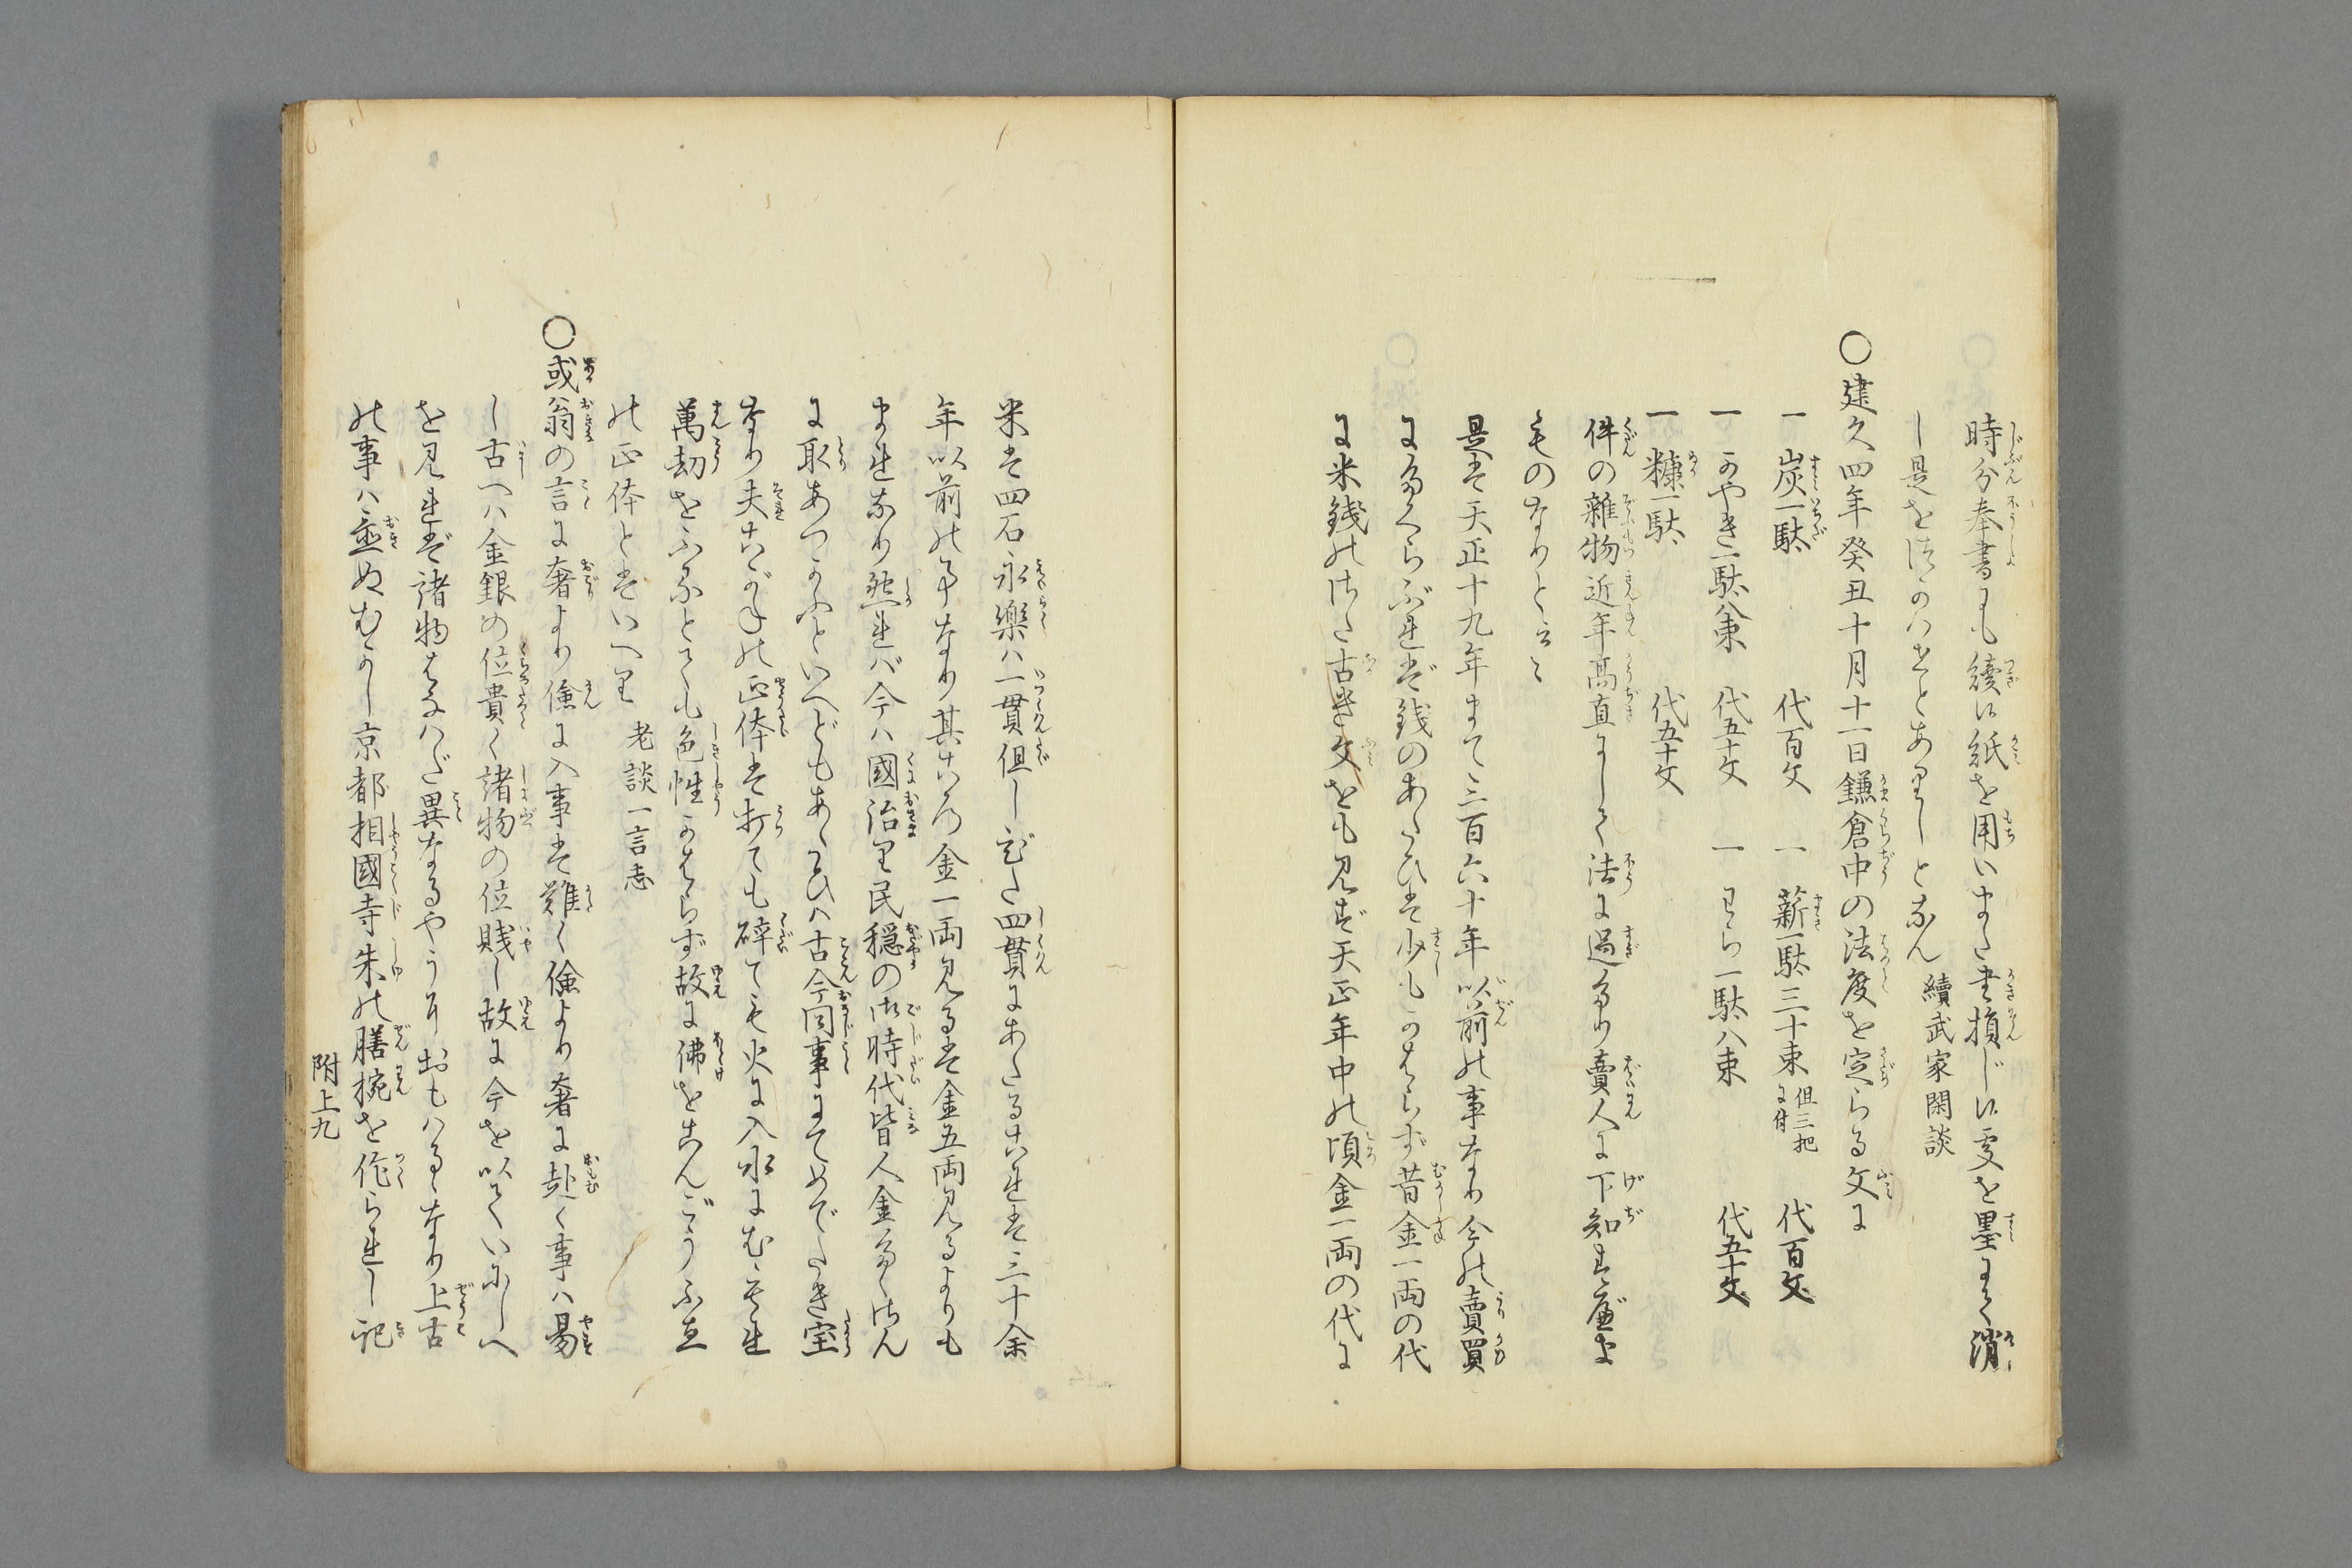 時分奉書にも續け紙を用いまた書損じけ処を墨にて消
し是をつかハせとありしとなん　續武家閑談
〇建久四年癸丑十月十一日鎌倉中の法度を定らる文に
一　炭一駄　代百文　一　薪一駄三十束但三把に付　代百文
一　かやき一駄八束　代五十文　一　わら一駄八束　代五十文
一　糠一駄　代五十文
件の雑物近年高直にして法に過たり賣人に下知すべき
ものなりと云々
是は天正十九年まで三百六十年以前の事なり今の賣買
にたくらぶれば銭のあたひは少もかはらず昔金一両の代
に米銭のけた古き文をも見ば天正年中の頃金一両の代に
米は四石永樂ハ一貫但しびた四貫にあたるこれは三十余
年以前の事なり其ころ金一両見るは金五両見るよりも
まれなり然れバ今ハ國治り民穏の御時代皆人金たくさん
に取あつかふといへどもあたひハ古今同事にてめでたき宝
なり夫こがねの正体は打ても碎ても火に入水にむもれ
萬劫をふるとても色性かはらず故に佛をこんごうふゑ
の正体とはいへり　老談一言志
〇或翁の言に奢より儉に入事は難く儉より奢に赴く事ハ易
し古へハ金銀の位貴く諸物の位賎し故に今を以ていにしへ
を見れば諸物はなハだ異なるやうにおもハるゝなり上古
の事ハ置ぬむかし京都相國寺朱の膳椀を作られし記
附上九